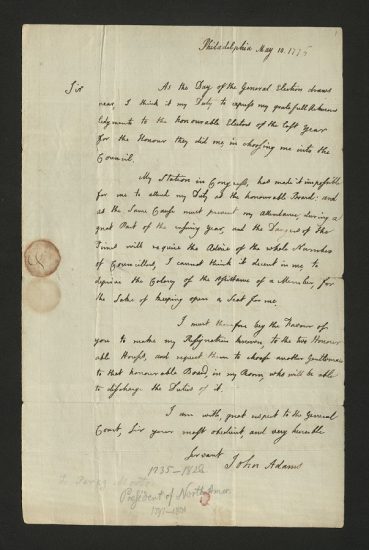 Philadelphia May 10. 1776
Sir
As the Day of the General Election draws
near, I think it my Duty to express my gratefull Acknow
ledgments to the honourable Electors of the last Year
for the Honour they did me in choosing me into the
Council.
My Station in Congress, has made it impossible
for me to attend my Duty at the honourable Board: and
as the Same Cause must prevent my attendance, during a
great Part of the ensuing Year, and the Dangers of the
Times will require the Advice of the whole Number
of Councillors, I cannot think it decent in me, to
deprive the Colony of the Assistance of a Member, for
the Sake of keeping open a Seat for me.
I must therefore beg the Favour of
you to make my Resignation known, to the two Honour
able Houses, and request them to choose another Gentleman
to that honourable Board, in my Room, who will be able
to discharge the Duties of it.
I am with, great respect to the General
Court, Sir your most obedient, and very humble
Servant John Adams
1735–1826
President of North Amer.
1797–1801